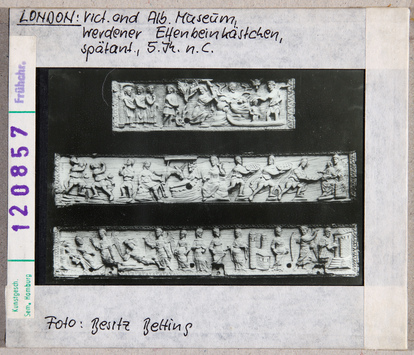 LONDON: Vict. and Alb. Museum,
Werdener Elfenbeinkästchen,
spätant., 5. Jh. n. C.
Frühchr.
120857
Kunstgesch.
Sem. Hamburg
Foto: Besitz Betting